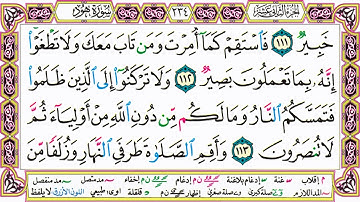 الجزء الثاني عشر ٢٣٤ سورة هود
خَبِيرٌ ١١١ فَاسْتَقِمْ كَمَا أُمِرْتَ وَمَن تَابَ مَعَكَ وَلَا تَطْغَوْا
إِنَّهُ بِمَا تَعْمَلُونَ بَصِيرٌ ١١٢ وَلَا تَرْكَنُوا إِلَى الَّذِينَ ظَلَمُوا
فَتَمَسَّكُمُ النَّارُ وَمَا لَكُم مِّن دُونِ اللَّهِ مِنْ أَوْلِيَاءَ ثُمَّ
لَا تُنصَرُونَ ١١٣ وَأَقِمِ الصَّلَوٰةَ طَرَفَيِ النَّهَارِ وَزُلَفًا مِّنَ